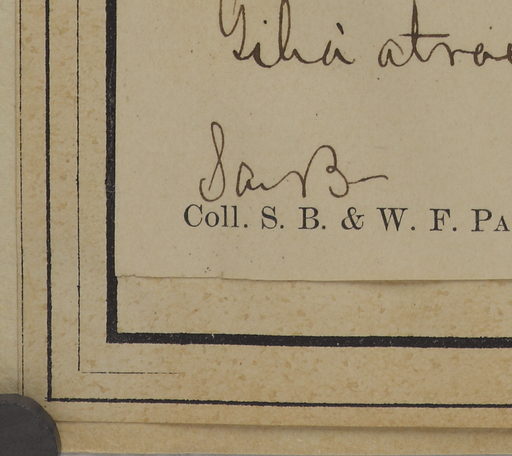 Gilia atrac
San B
Coll. S. B. & W. F. PA